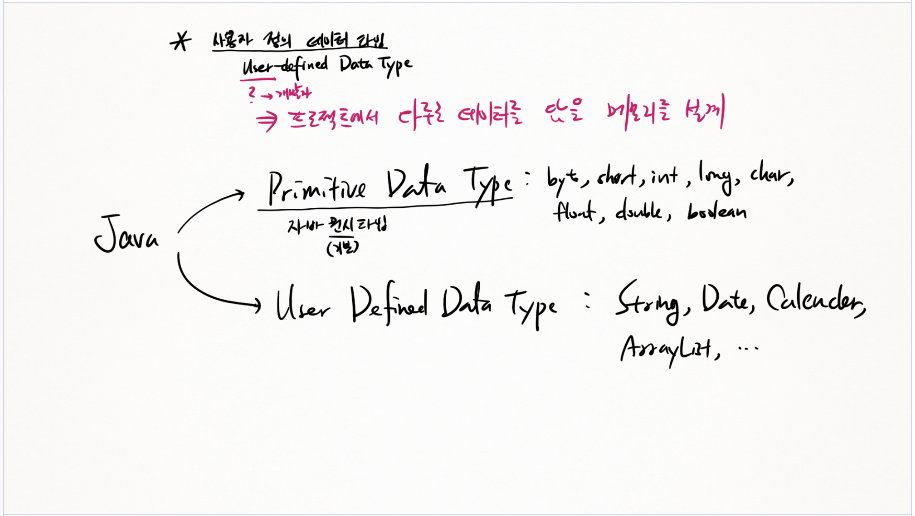 * 사용자 정의 데이터 타입
User-defined Data Type
? → 개발자
⇒ 프로젝트에서 다루는 데이터를 담을 메모리를 설계
Primitive Data Type : byte, short, int, long, char,
float, double, boolean
자바 원시타입
(기본)
Java
User Defined Data Type : String, Date, Calender,
ArrayList, ...